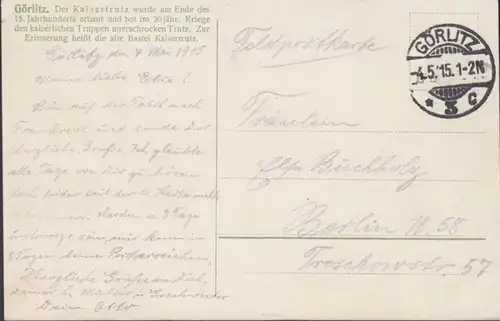 Görlitz. Der Kaisertrutz wurde am Ende des
15. Jahrhunderts erbaut und bot im 30jähr. Kriege
den kaiserlichen Truppen unerschrocken Trutz. Zur
Erinnerung heißt die alte Bastei Kaisertrutz.
Görlitz den 4 Mai 1915
Meine liebe Else!
Bin auf der Fahrt nach
Frankreich und sende Dir
herzliche Grüße. Ich glaubte
alle Tage von Dir zu hören
doch leider seit der
3 Tage
unterwegs sein, wir
8 Tagen keine
Herzliche Grüße an Dich,
deiner l. Mutter u. Geschwister
Dein Otto
Feldpostkarte
GÖRLITZ
4.5.15.1-2N
* 3 c
Fräulein
Else Buchholz
Berlin N. 58
Tresckowstr. 57